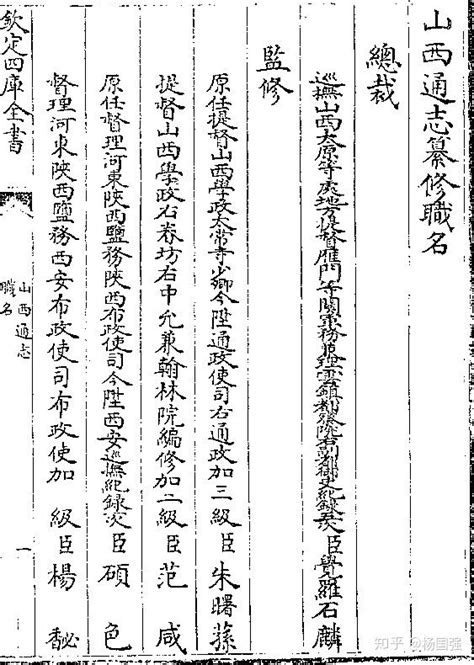 山西通志纂修職名
總裁
巡撫山西太原等處地方提督鴈門等關軍務兼理雲鎮都察院右副都御史紀錄 次臣覺羅石麟
監修
原任提督山西學政太常寺少卿今陞通政使司右通政加三級臣朱曙蓀
提督山西學政右春坊右中允兼翰林院編修加二級臣范咸
原任督理河東陝西鹽務陝西布政使司今陞西安巡撫紀録 次臣碩色
督理河東陝西鹽務西安布政使司布政使加 級臣楊馝
欽定四庫全書
山西通志
職名
一
知乎 @杨国强